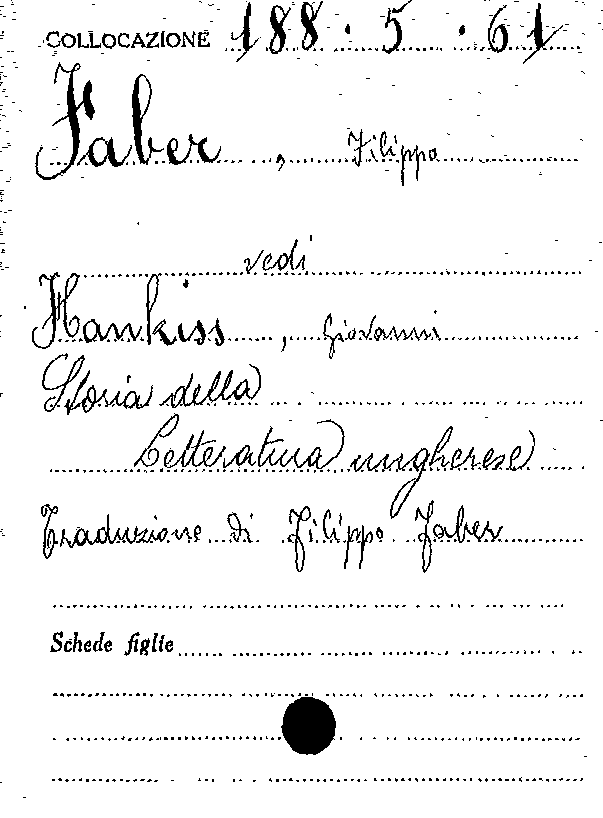 COLLOCAZIONE 188.5.61
Faber, Filippo
vedi
Hankiss, Giovanni
Storia della
Letteratura ungherese
Traduzione di Filippo Faber
Schede figlie